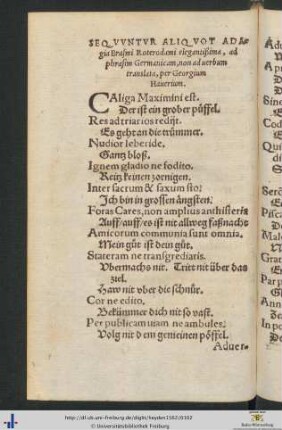 SEQVVNTVR ALIQVOT ADA
gia Erasmi Roterodami elegantißima, ad
phrasim Germanicam, non ad uerbum
translata, per Georgium
Hauerium.
CAliga Maximini est.
Der ist ein grober püffel.
Res ad triarios redijt.
Es gehr an die trümmer.
Nudior leberide.
Gantz bloß.
Ignem gladio ne fodito.
Reitz keinen zoenigen.
Inter sacrum & saxum sto.
Ich bin in grossen ängsten.
Foras Cares, non amplius anthisteria
Auff/auff/es ist nit allweg faßnacht
Amicorum communia sunt omnia.
Mein gůt ist dein gůt.
Stateram ne transgrediaris.
Vbermachs nit. Tritt nit über das
ziel.
Haw nit vber die schnůr.
Cor ne edito.
Bekümmer dich nit so vast.
Per publicam uiam ne ambules.
Volg nit dem gemeinen pöffel.
Aduer-
http://dl.ub.uni-freiburg.de/diglit/heyden1562/0102
© Universitätsbibliothek Freiburg